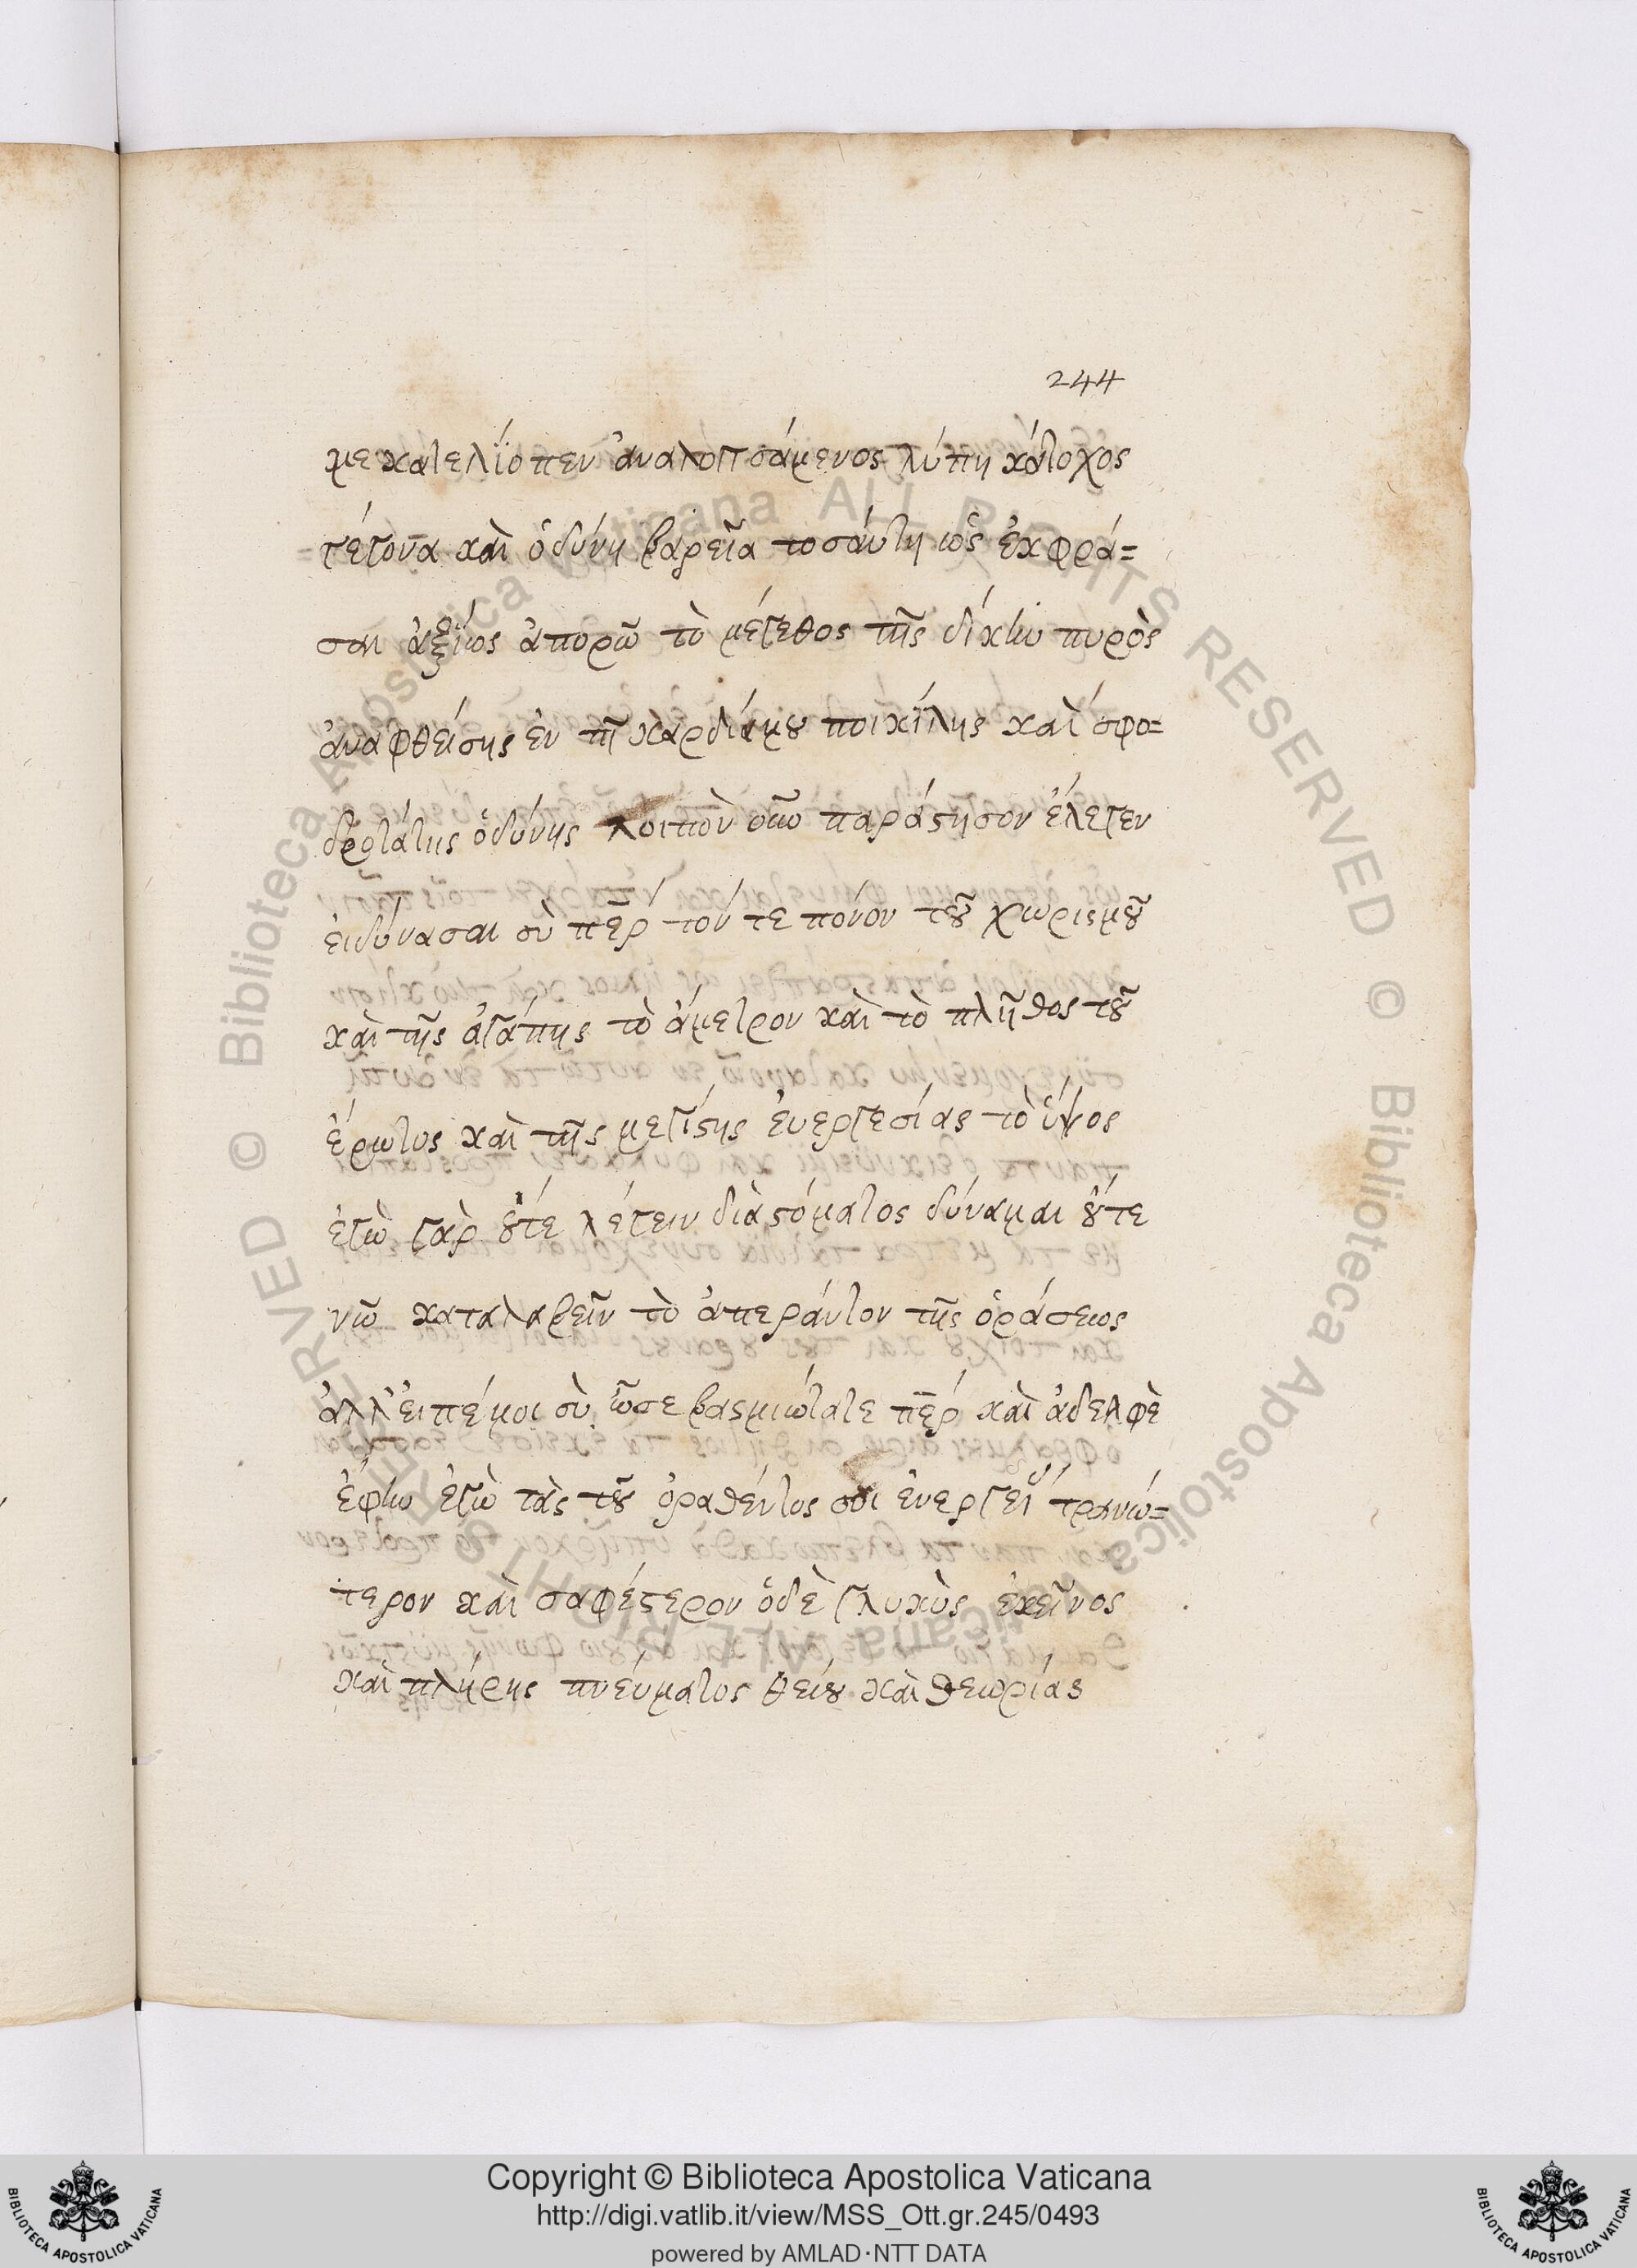 244
με κατελίϊοπεν ἀναλογισάμενος λύπη κάτοχος
γέγονα καὶ ὀδύνη βαρεῖα τοσάυτη ὡς ἐκφρά=
σαι ἀξίως ἀπορῶ τὸ μέγεθος τῆς δίκην πυρὸς
ἀναφθείσης ἐν τῆ καρδίαμου ποικίλης καὶ σφο=
δροτάτης ὀδύνης λοιπὸν παράστησον ἔλεγεν
ἐιδύνασαι σὺ περ τόν τε πόνον τοῦ χωρισμοῦ
καὶ τῆς ἀγάπης τὸ ἄμετρον καὶ τὸ πλῆθος τοῦ
ἔρωτος καὶ τῆς μεγίστης ἐυεργεσίας τὸ ὕψος
ἐγὼ γὰρ οὔτε λέγειν διὰ στόματος δύναμαι οὔτε
νῶ καταλαβεῖν τὸ ἀπεράντον τῆς ὁράσεως
ἀλλ' ἐιπέμοι σὺ ὦ σεβασμιώτατε περ καὶ ἀδελφὲ
ἔφην ἐγὼ τὰς τοῦ ὁραθέντος σοι ἐνεργεί τρανώ=
τερον καὶ σαφέστερον ὁδὲ γλυκὺς ἐκεῖνος
καὶ πλήρης πνέυματος θείου καὶ θεωρίας
Copyright © Biblioteca Apostolica Vaticana
http://digi.vatlib.it/view/MSS_Ott.gr.245/0493
powered by AMLAD·NTT DATA
BIBLIOTECA APOSTOLICA VATICANA
BIBLIOTECA APOSTOLICA VATICANA
© Biblioteca Apostolica Vaticana ALL RIGHTS RESERVED © Biblioteca Apostolica Vaticana ALL RIGHTS RESERVED